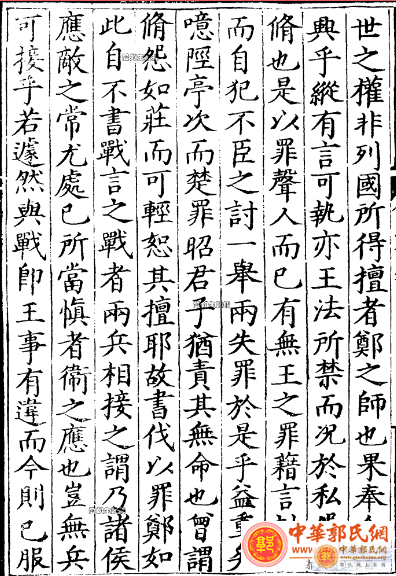 世之權非列國所得擅者鄭之師也果奉
興乎縱有言可執亦王法所禁而况於私
脩也是以罪聲人而已有無王之罪藉言
而自犯不臣之討一舉兩失罪於是乎益重矣
噫陘亭次而楚罪昭君子猶責其無命也曾謂
脩怨如莊而可輕恕其擅耶故書伐以罪鄭如
此自不書戰言之戰者兩兵相接之謂乃諸侯
應敵之常尤處已所當慎者衛之應也豈無兵
可接乎若遽然與戰即王事有違而今則已服
中華郭氏網